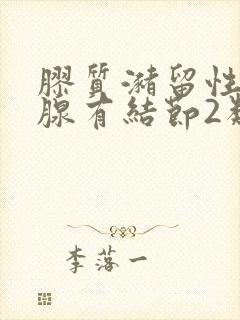 膠質瀦留性
腺有結節2
李落一